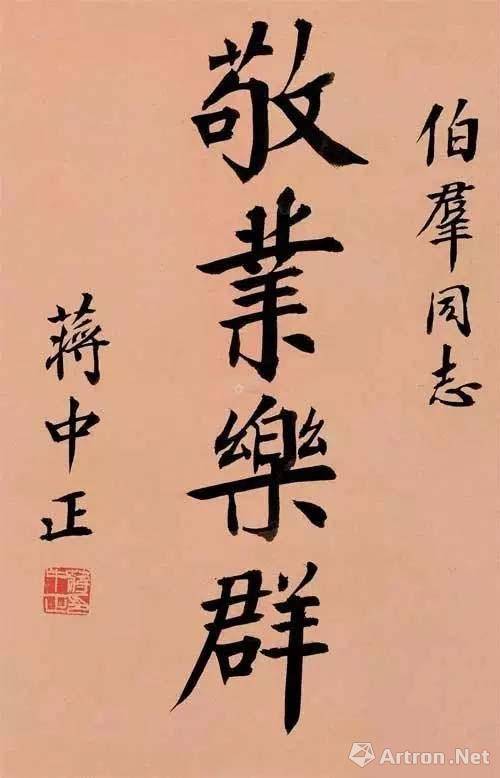 伯羣同志
敬業樂群
蔣中正
Artron.Net